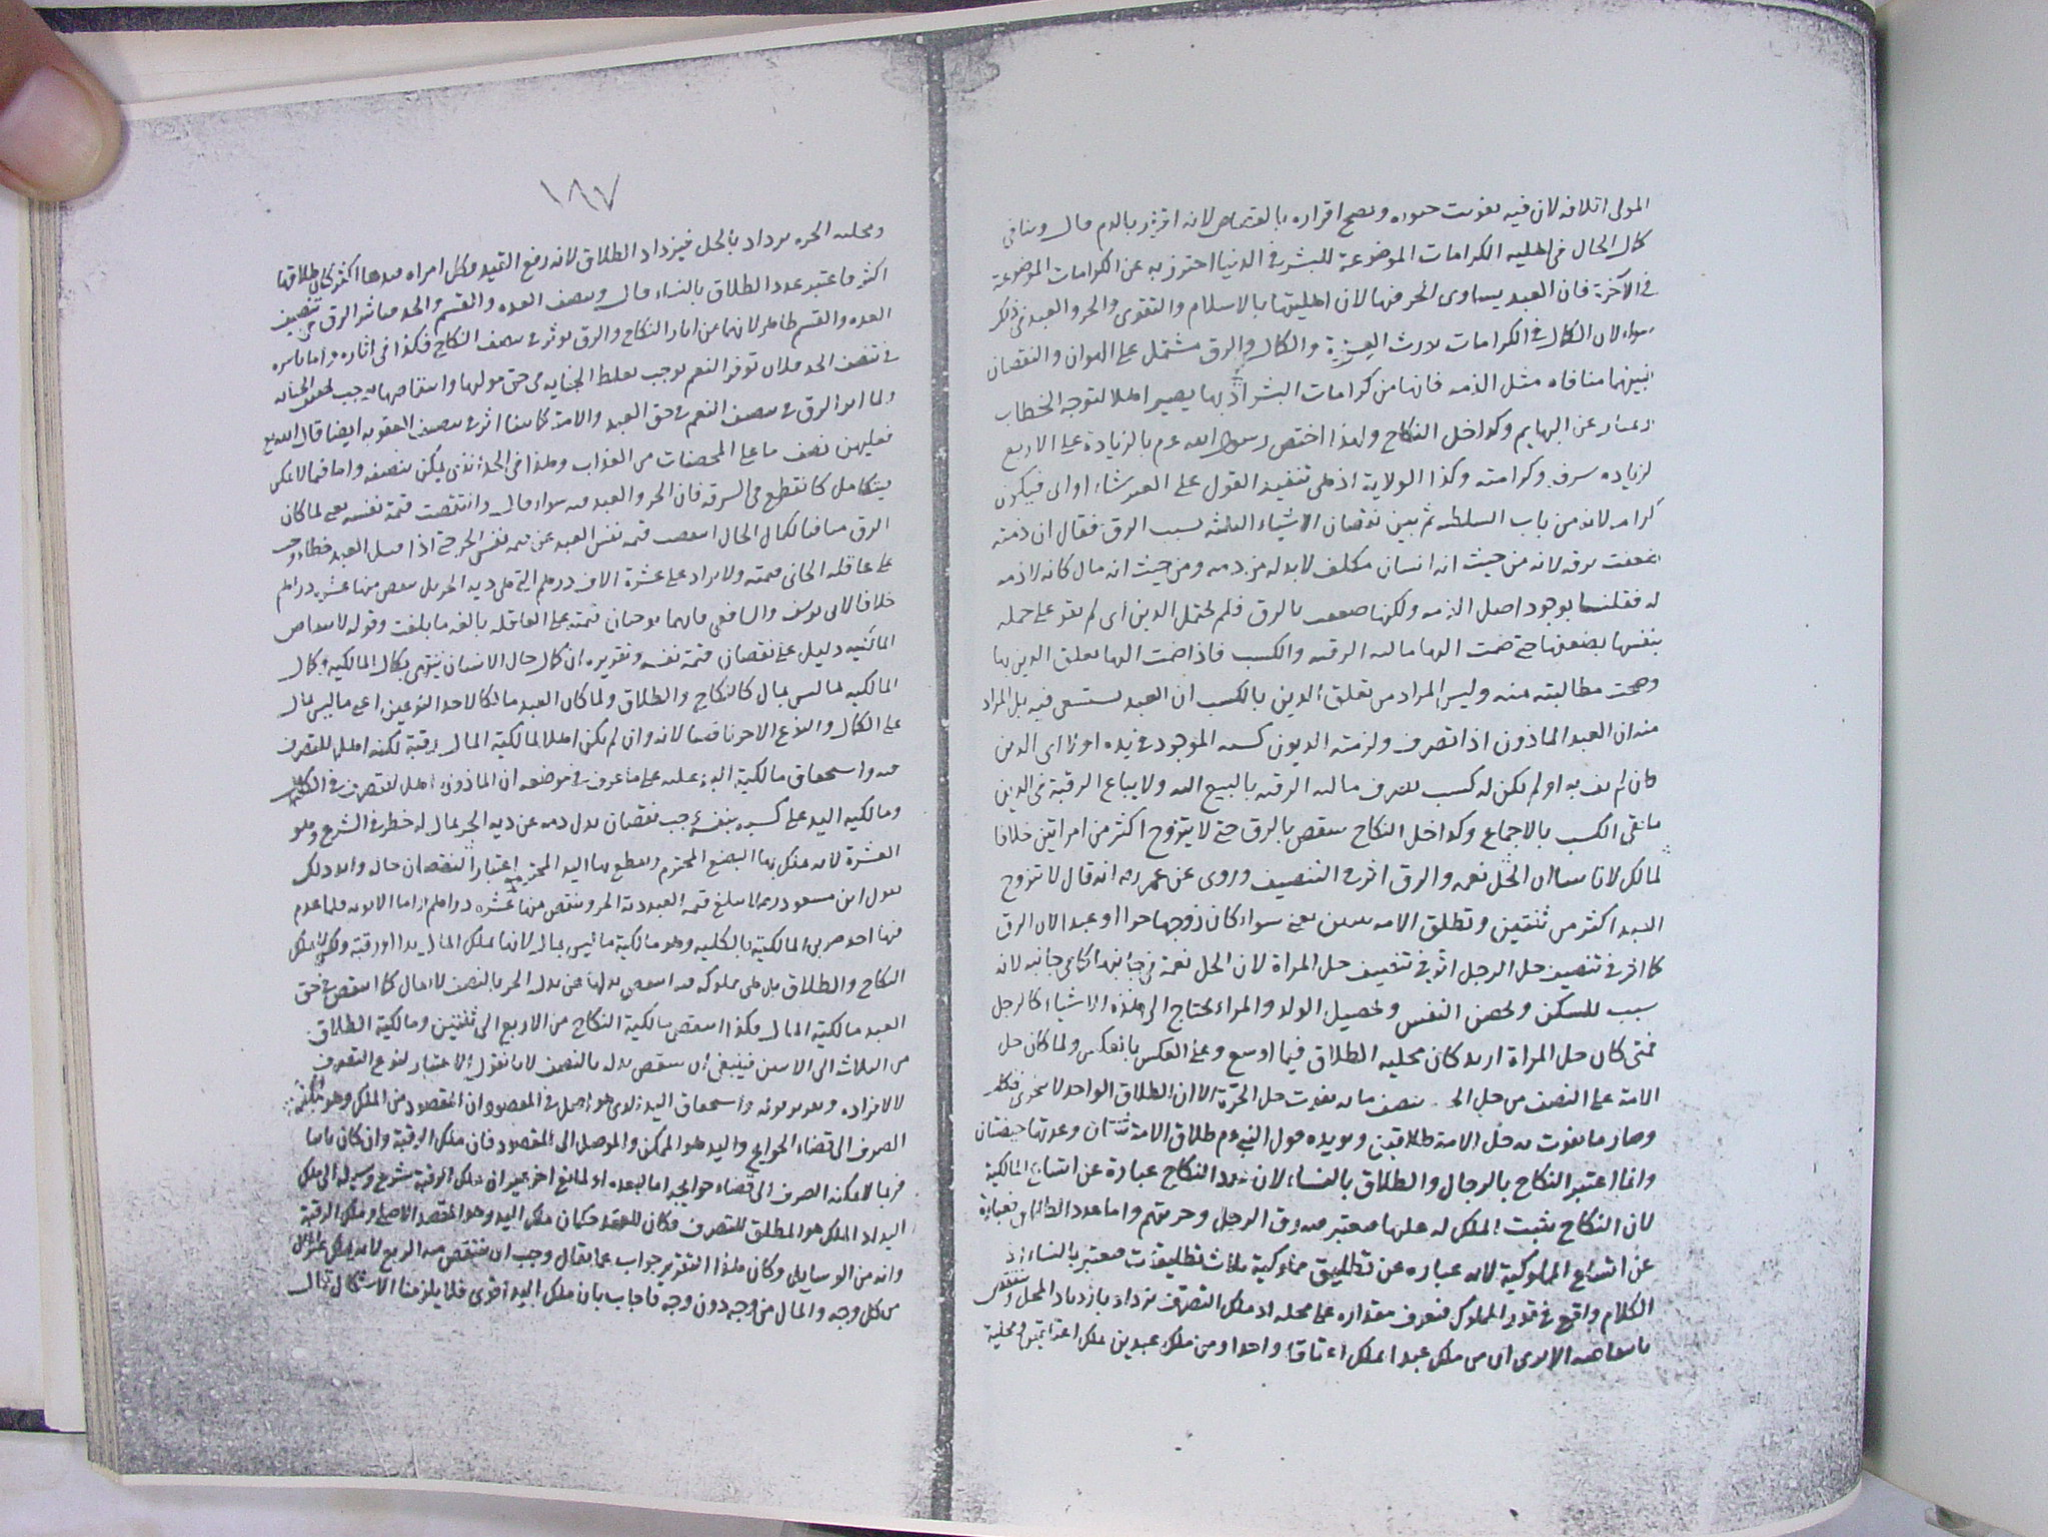 المولى اتلافه لان فيه تفويت حقوقه ويصح اقراره بالقصاص لانه اقرار بالدم قال وينافى
كمال الحال فى اهلية الكرامات الموضوعة للبشر فى الدنيا احترز به عن الكرامات الموضوعة
فى الآخرة فان العبد يساوى الحر فيها لان اهليتها بالاسلام والتقوى والحر والعبد فى ذلك
سواء لان الكمال فى الكرامات يورث العزة والكمال والرق مشتمل على الهوان والنقصان
فبينهما منافاه مثل الذمه فانها من كرامات البشر اذ بها يصير اهلا لتوجه الخطاب
عن البهايم وكذا حل النكاح ولهذا اختص رسول الله عم بالزيادة على الاربع
لزياده شرفه وكرامته وكذا الولاية اذ هى تنفيذ القول على الغير شاء او ابى فيكون
كرامه لانه من باب السلطنه ثم بين نقصان الاشياء الثلثه بسبب الرق فقال ان ذمته
ضعفت برقه لانه من حيث انه انسان مكلف لا بد له من ذمه ومن حيث انه مال كانه لا ذمه
له فقلنا بوجود اصل الذمه ولكنها ضعفت بالرق فلم تحتمل الدين اى لم تقو على حمله
بنفسها بضعفها حتى ضمت اليها ماليه الرقبه والكسب فاذا ضمت اليها تعلق الدين بها
وصحت مطالبته منه وليس المراد من تعلق الدين بالكسب ان العبد يستسعى فيه بل المراد
منه ان العبد الماذون اذا تصرف ولزمته الديون كسبه الموجود فى يده اولا اى الدين
فان لم يف به او لم يكن له كسب تصرف ماليه الرقبه بالبيع اليه ولا يباع الرقبة فى الدين
ما بقى الكسب بالاجماع وكذا حل النكاح ينتقص بالرق حتى لا يتزوج اكثر من امراتين خلافا
لمالك لانا بينا ان الحل نعمه والرق اثر فى التنصيف وروى عن عمر رضه انه قال لا تزوج
العبد اكثر من ثنتين وتطلق الامه ثنتين يعنى سواء كان زوجها حرا او عبدا لان الرق
كما اثر فى تنصيف حل الرجل اثر فى تنصيف حل المراة لان الحل نعمة فى جانبها كما فى جانبه لانه
سبب للسكن وتحصن النفس وتحصيل الولد والمراة تحتاج الى هذه الاشياء كالرجل
فمتى كان حل المراة ازيد كان محليه الطلاق فيها اوسع وعلى العكس بالعكس ولما كان حل
الامة على النصف من حل الحرة بنصف ما به يفوت حل الحرة الا ان الطلاق الواحد لا يتجزى فتكامل
وصار ما يفوت به حل الامة طلاقين ويويده قول النبى عم طلاق الامة ثنتان وعدتها حيضتان
وانما اعتبر النكاح بالرجال والطلاق بالنساء لان عدد النكاح عبارة عن اتساع المالكية
لان النكاح يثبت الملك له عليها معتبر فيه رق الرجل وحريتهم واما عدد الطلاق فعبارة
عن اتساع المملوكية لانه عباره عن تطليق مملوكية ثلاث تطليقات معتبر بالنساء اذ
الكلام واقع فى قدر المملوك فتعرف مقداره على محله اذ ملك التصرف يزداد بازدياد المحل وينتقص
بانتقاصه الا ترى ان من ملك عبدا ملك اعتاقا واحدا ومن ملك عبدين ملك اعتاقين ومحلية
١٨٧
ومحليه الحره يزداد بالحل فيزداد الطلاق لانه رفع القيد فكل امراه قيدها اكثر كان طلاقها
اكثر فاعتبر عدد الطلاق بالنساء قال وينصف العده والقسم والحد من اثر الرق تنصيف
العده والقسم ظاهر لانهما من اثار النكاح والرق يوثر فى تنصف النكاح فكذا فى اثاره واما تاثيره
فى تنصف الحد فلان توفر النعم يوجب تغلظ الجنايه فى حق موليها وانتقاصها يوجب تخفيف الجنايه
ولما اثر الرق فى تنصيف النعم فى حق العبد والامة كما بينا اثر فى تنصيف العقوبه ايضا قال الله تع
فعليهن نصف ما على المحصنات من العذاب وهذا فى الحد الذى يمكن تنصفه واما فيما لا يمكن
يتكامل كالقطع فى السرقه فان الحر والعبد فيه سواء قال وانتقصت قيمة نفسه يعنى لما كان
الرق منافيا لكمال الحال انتقصت قيمه نفس العبد عن قيمه نفس الحر حتى اذا قتل العبد خطا وجب
على عاقله الجانى قيمته ولا يزاد على عشرة الاف درهم التى هى ديه الحر بل ينتقص منها عشرة دراهم
خلافا لابى يوسف والشافعى فانهما يوجبان قيمته على العاقله بالغه ما بلغت وقوله لانتقاص
المالكيه دليل على نقصان قيمة نفسه وتقريره ان كمال حال الانسان ينتهى بكمال المالكيه وكمال
المالكيه لما ليس بمال كالنكاح والطلاق ولما كان العبد مالكا لاحد النوعين اعنى ما ليس بمال
على الكمال والنوع الاخر ناقصا لانه وان لم يكن اهلا لمالكية المال رقبة لكنه اهلها للتصرف
فيه واستحقاق مالكية اليد عليه على ما عرف فى موضعه ان الماذون اهل للتصرف فى
ومالكيه اليد على كسبه بنفسه وجب نقصان بدل دمه عن ديه الحر بمال له خطر فى الشرع وهو
العشرة لانه يملك بها البضع المحترم ويقطع بها اليد المحترمه اعتبارا لنقصان حاله واليه ذلك
بقول ابن مسعود رضه لا يبلغ قيمة العبد دية الحر وينتقص منها عشره دراهم اما الانوثه فلما عدم
فيها احد ضربى المالكيه بالكليه وهو مالكية ما ليس بمال لانها تملك المال يدا ورقبة ولكن لا تملك
النكاح والطلاق بل هى مملوكه فيه انتقص بدلها عن بدل الحر بالنصف لا يقال كما انتقص فى حق
العبد مالكية المال فكذا انتقص مالكية النكاح من الاربع الى ثنتين ومالكية الطلاق
من الثلاث الى الاثنين فينبغى ان ينتقص بدله بالنصف لانا نقول الاعتبار لنوع التصرف
لا لافراده واستحقاق اليد الذى هو اصل فى المقصود ان المقصود من الملك وهو تمكنه
الصرف الى قضاء الحوايج واليد هو الممكن والموصل الى المقصود فان ملك الرقبة وان كان تاما
فربما لا يمكنه الصرف الى قضاء حوايجه اما لبعده او لمانع اخر غير ان ملك الرقبة شرع وسيلة الى ملك
اليد اذ الملك هو المطلق للتصرف فكان للعقد حكمان ملك اليد وهو المقصد الاصلى وملك الرقبة
وانه من الوسايل وكان هذا التقرير جواب عما يقال وجب ان ينتقص منه الربع لانه يملك غير المال
من كل وجه والمال من وجه دون وجه فاجاب بان ملك اليد اقوى فلا يلزمنا الاشكال قال